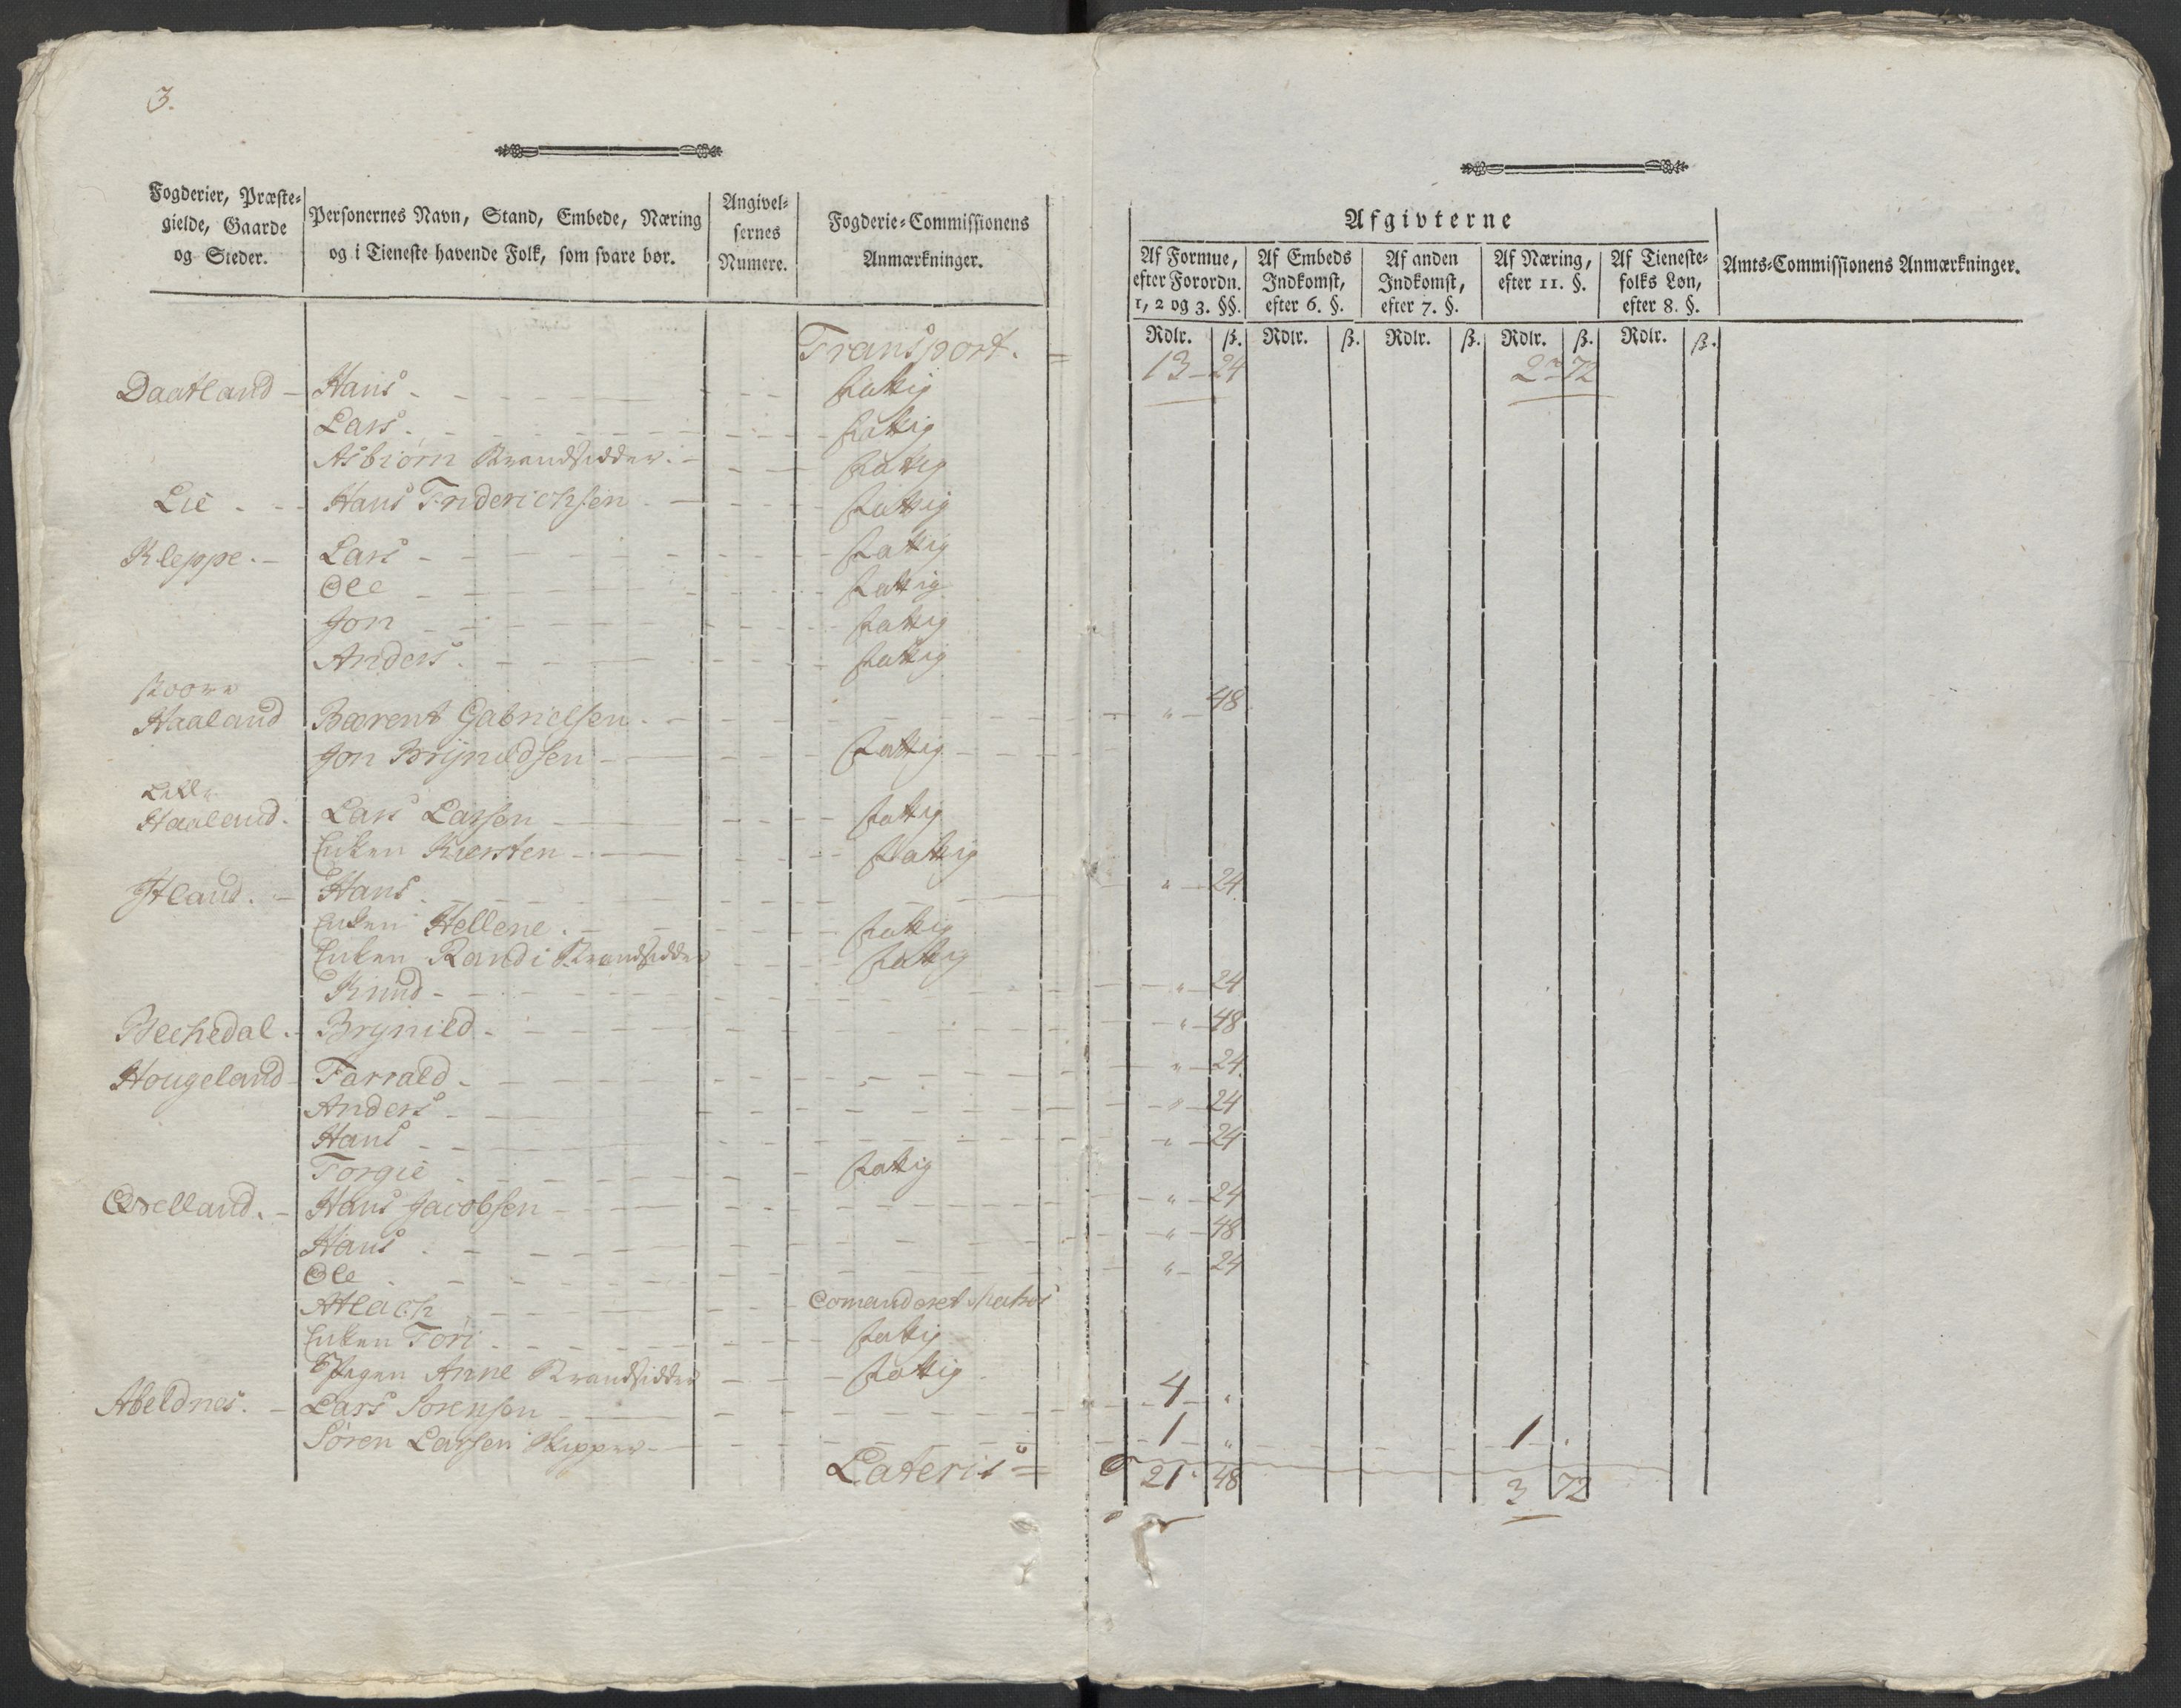 3.
Fogderier, Præste-gielde, Gaarde og Steder. Personernes Navn, Stand, Embede, Næring og i Tieneste havende Folk, som svare bør. Angivel-sernes Numere. Fogderie-Commissionens Anmærkninger.
Afgivterne
Af Formue, efter Forordn. 1, 2 og 3. §§. Af Embeds Indkomst, efter 6. §. Af anden Indkomst, efter 7. §. Af Næring, efter 11. §. Af Tieneste-folks Løn, efter 8. §. Amts-Commissionens Anmærkninger.
Rdlr. ß. Rdlr. ß. Rdlr. ß. Rdlr. ß. Rdlr. ß.
Transport. = 13 - 24 2 - 72
Daatland - Hans - fattig
Lars - fattig
Asbiørn Strandsidder - fattig
Lie - Hans Friderichsen - fattig
Kleppe - Lars - fattig
Ole - fattig
Jon - fattig
Anders - fattig
Stoere
Haaland Bærent Gabrielsen - " - 48
Jon Brÿnildsen - fattig
Lille
Haaland. Lars Larsen - fattig
Enken Kiersten - fattig
Jtland. - Hans - " - 24
Enken Hellene - fattig
Enken Randi Strandsidder fattig
Knud - " - 24
Bechedal. - Brynild - " - 48
Hougeland - Tarrald - " - 24
Anders - " - 24
Hans - " - 24
Torgie - fattig
Qvelland. - Hans Jacobsen - " - 24
Hans - " - 48
Ole - " - 24
Atlach - Comanderet Matros
Enken Tori - fattig
Pigen Anne Strandsidder - fattig
Abeldnes. - Lars Sørensen - 4 - "
Søren Larsen Skipper - 1 - " 1 - "
Lateris = 21 48 3 72